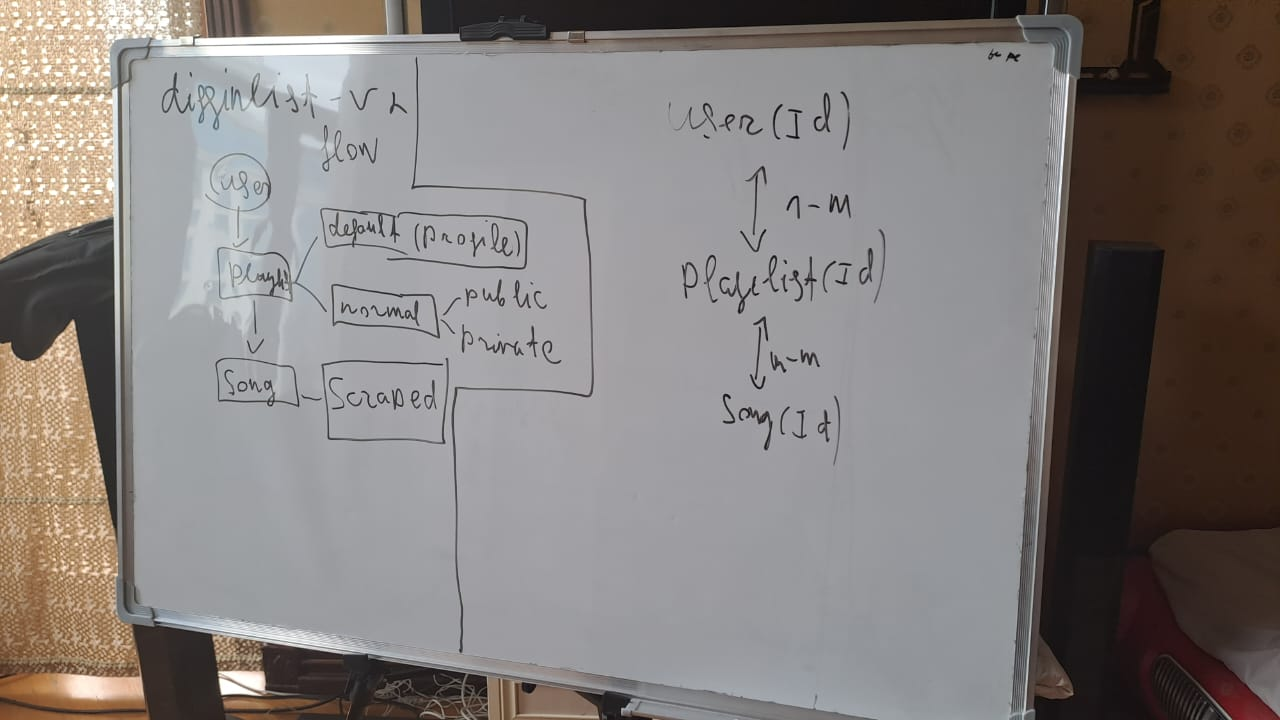 digginlist - v2
flow
user
playlist
default (profile)
normal
public
private
Song
Scraped
user (Id)
n-m
Playelist (Id)
n-m
Song (Id)